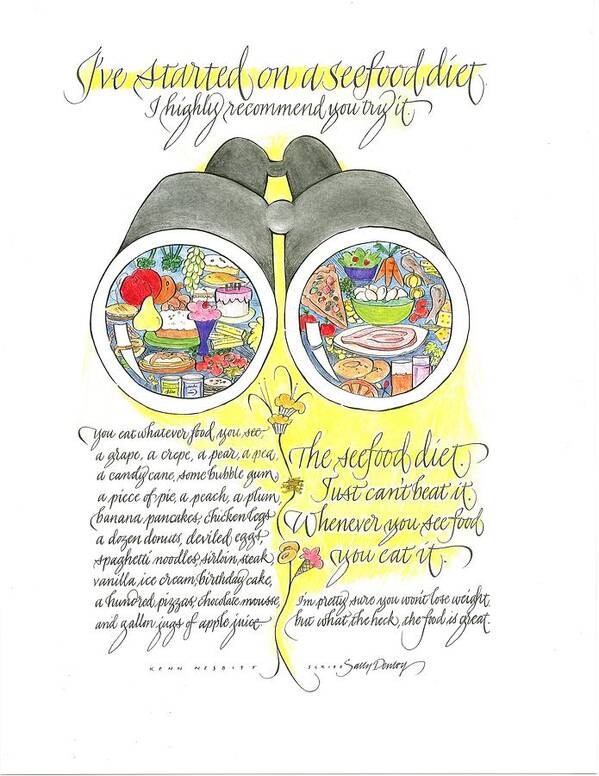 I've started on a seefood diet.
I highly recommend you try it.
you eat whatever food you see,
a grape, a crepe, a pear, a pea,
a candy cane, some bubble gum,
a piece of pie, a peach, a plum,
banana pancakes, chicken legs
a dozen donuts, deviled eggs,
spaghetti noodles, sirloin steak
vanilla ice cream, birthday cake,
a hundred pizzas, chocolate mousse,
and gallon jugs of apple juice.
The seefood diet.
Just can't beat it.
Whenever you see food
you eat it.
I'm pretty sure you won't lose weight,
but what the heck, the food is great.
KENN NESBITT
Sally Penley